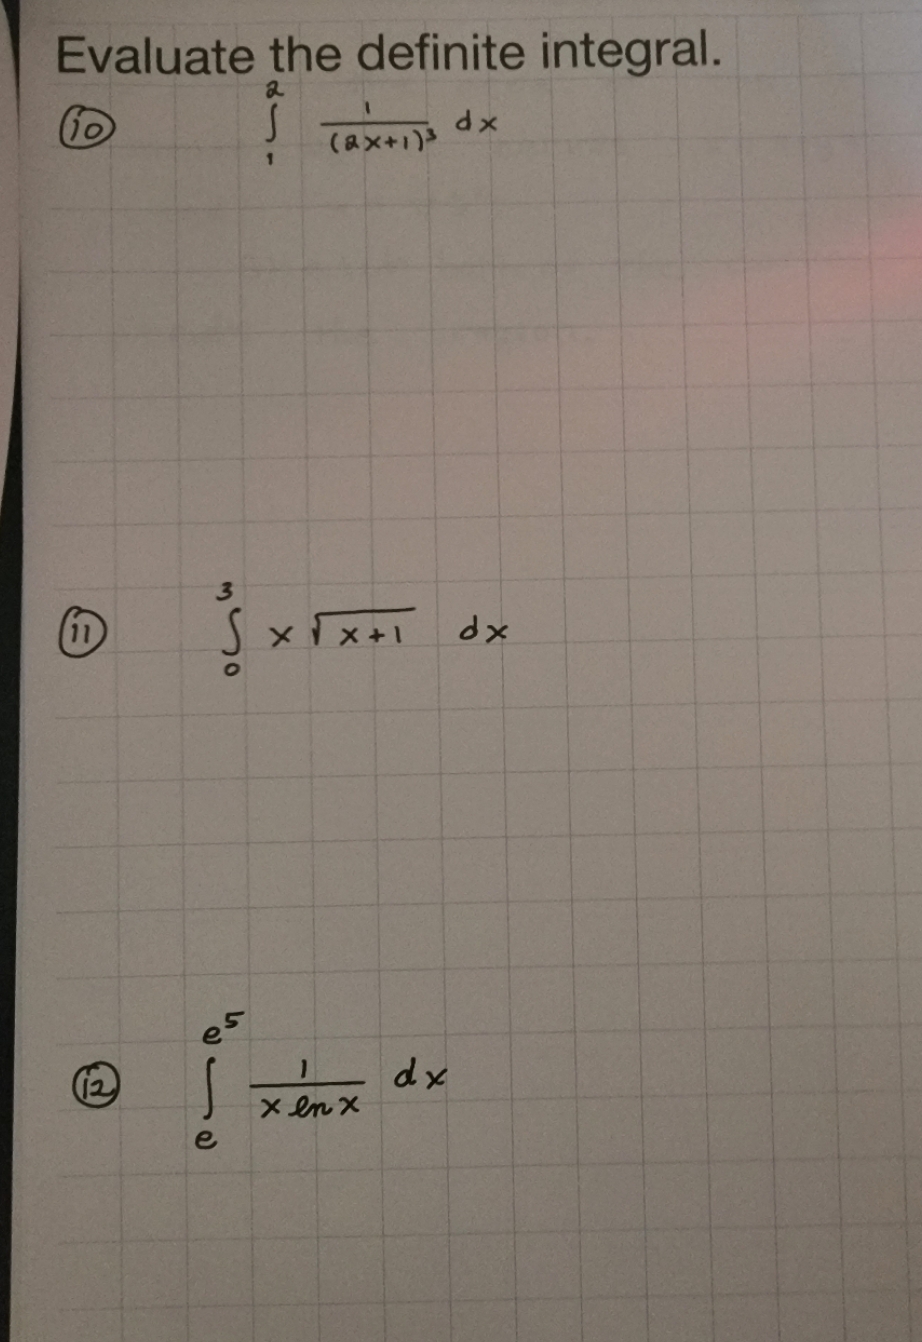 Evaluate the definite integral.
⑩ ∫₁² 1/(2x+1)³ dx
⑪ ∫₀³ x√(x+1) dx
⑫ ∫ₑ^(e⁵) 1/(x ln x) dx